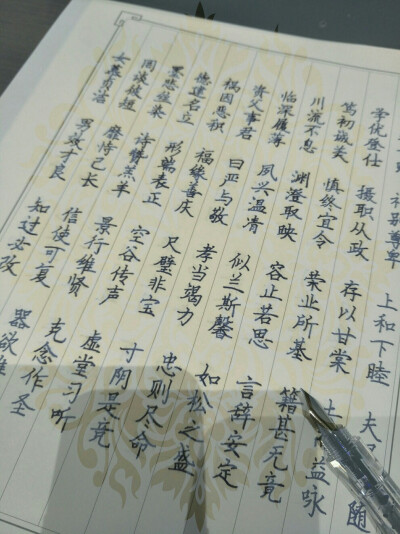 别尊卑 上和下睦 夫 随
学优登仕 摄职从政 存以甘棠 益咏
笃初诚美 慎终宜令 荣业所基 籍甚无竟
川流不息 渊澄取映 容止若思 言辞安定
临深履薄 夙兴温凊 似兰斯馨 如松之盛
资父事君 曰严与敬 孝当竭力 忠则尽命
祸因恶积 福缘善庆 尺璧非宝 寸阴是竞
德建名立 形端表正 空谷传声 虚堂习听
墨悲丝染 诗赞羔羊 景行维贤 克念作圣
罔谈彼短 靡恃己长 信使可复 器欲难
女慕贞洁 男效才良 知过必改